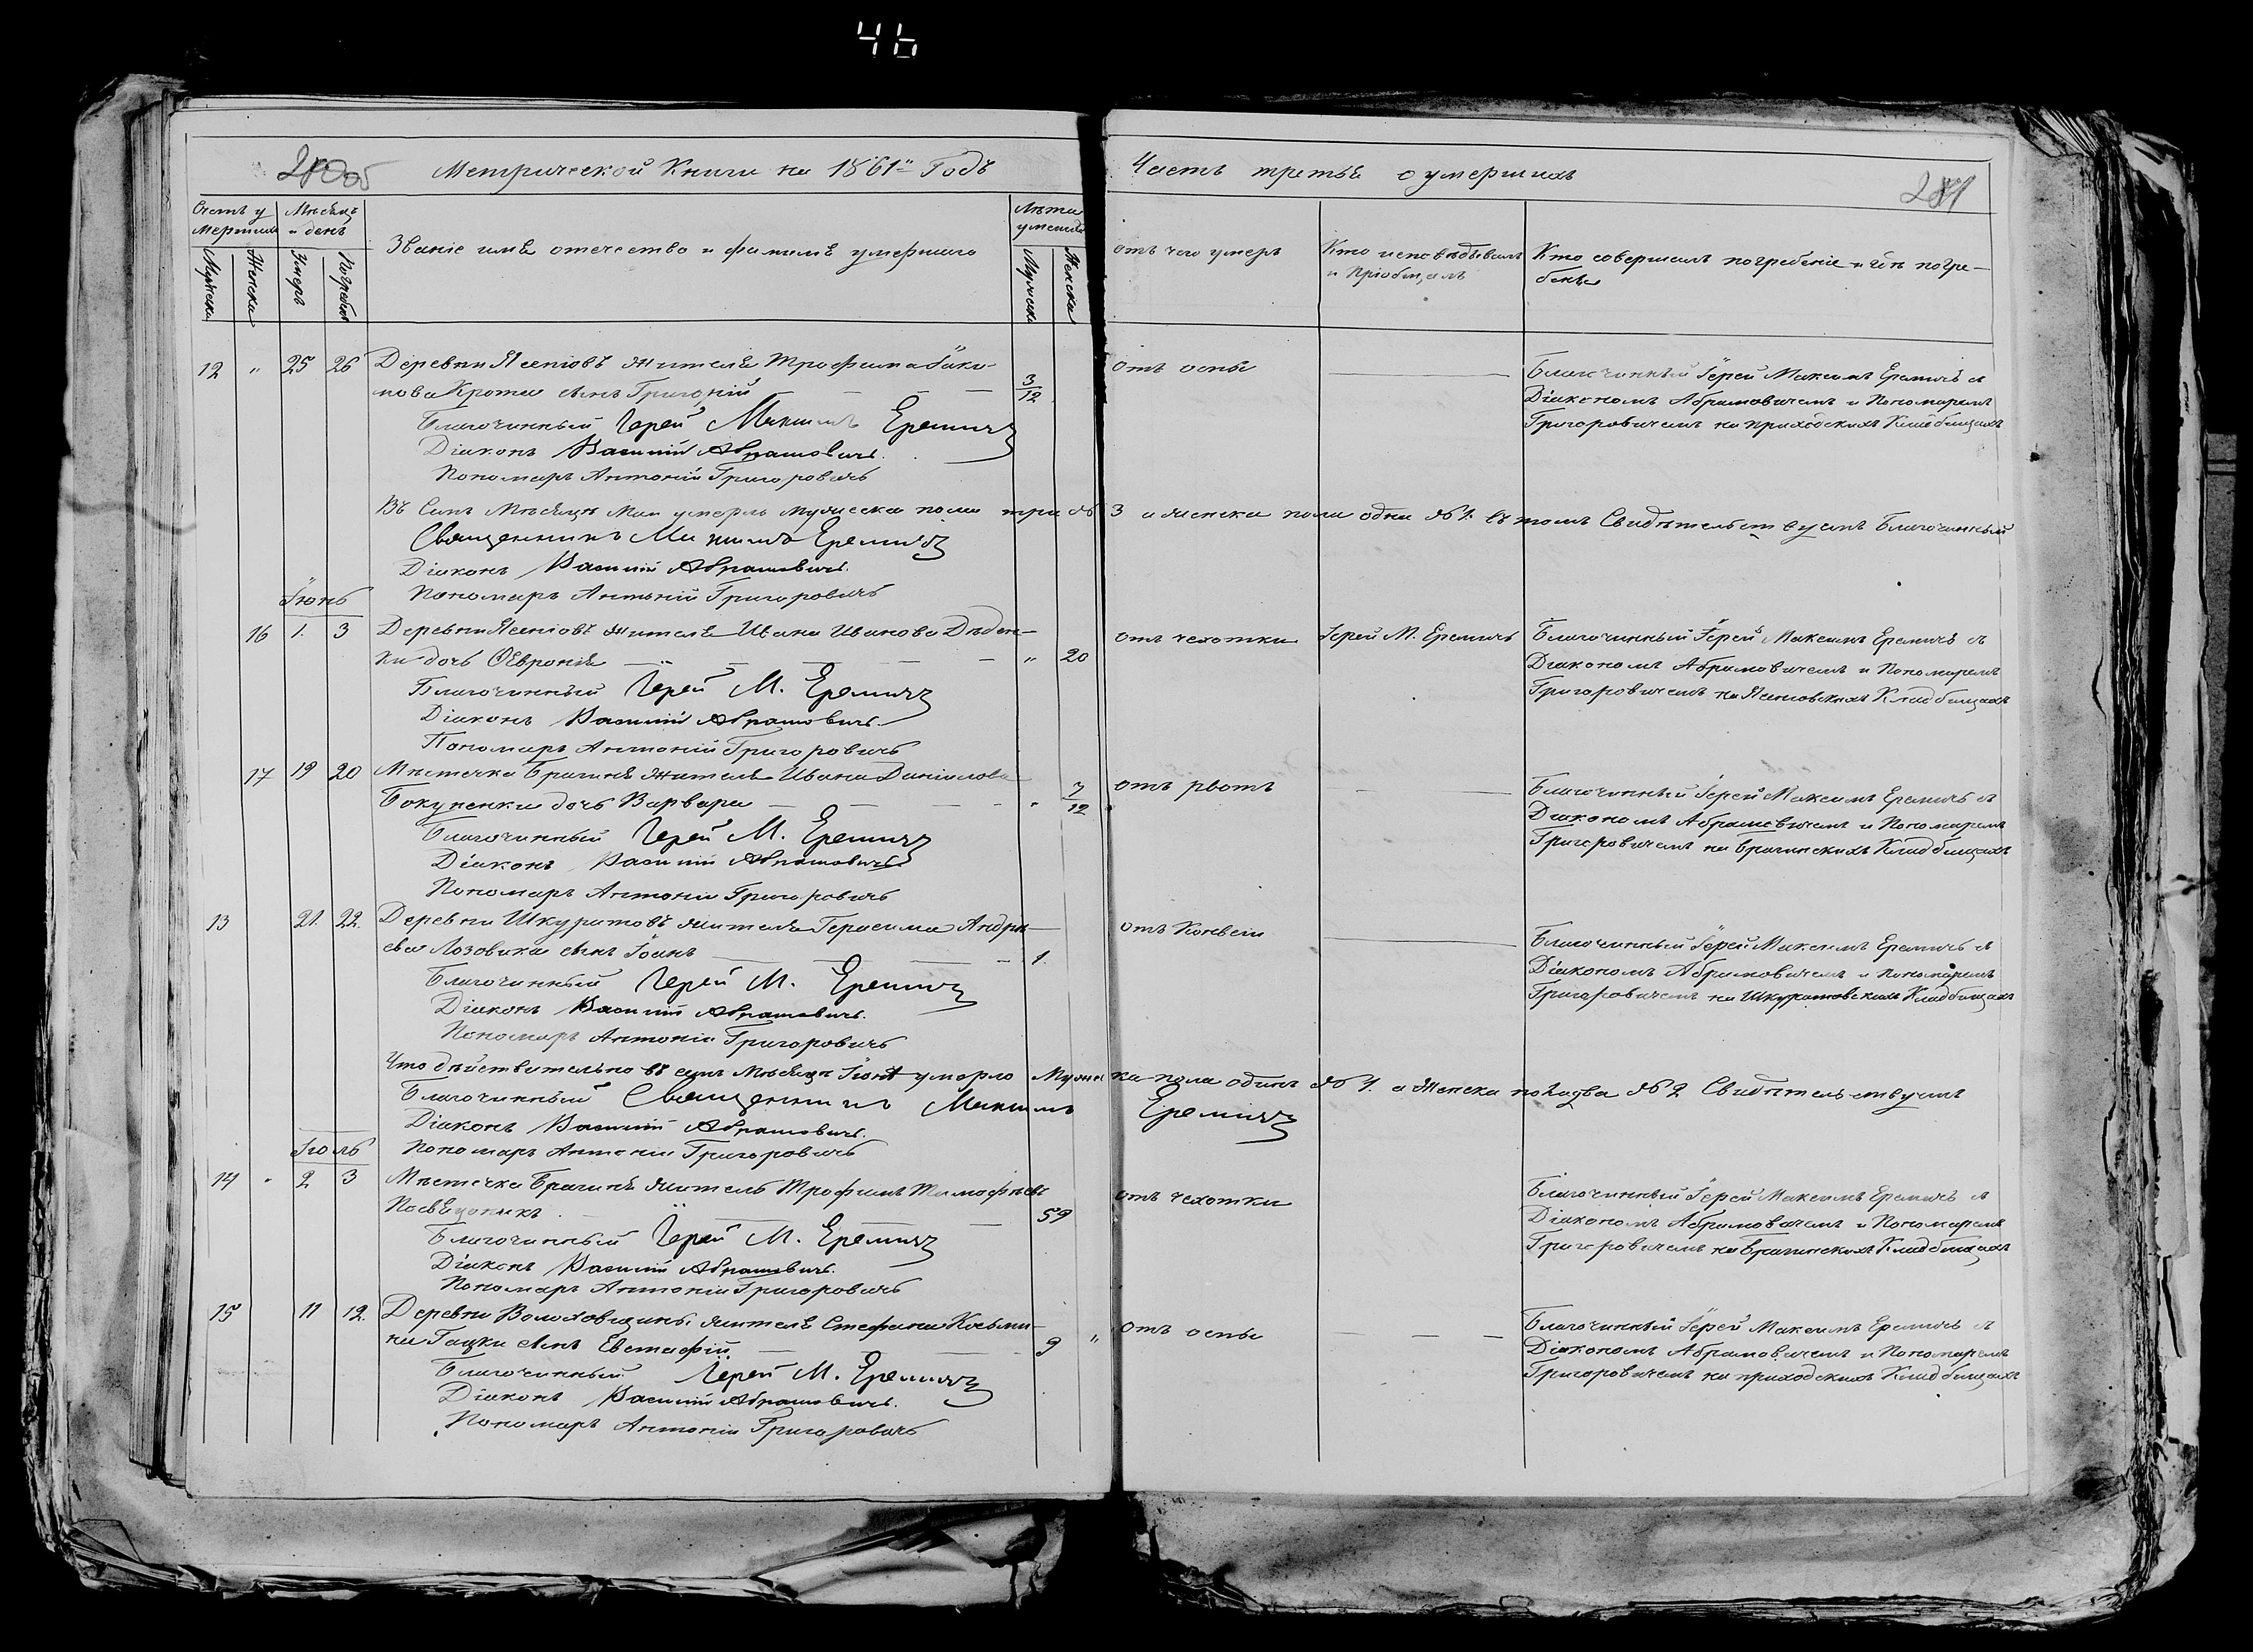 46
Метрической Книги на 1861й Годъ
Часть третья о умершихъ
281
Счетъ у
мершихъ
Мѣсяцъ
и день
Званіе имя отечество и фамилія умершаго
Лѣта
умершаго
отъ чего умеръ
Кто исповѣдывалъ
и пріобщалъ
Кто совершалъ погребеніе и гдѣ погре-
бены
Мужеска
Женска
Умеръ
Погребенъ
Мужеска
Женска
12 " 25 26 Деревни Ясеніовъ жителя Трофима
нова Крота сынъ Григорій 3/12
отъ оспы
Благочинный Іерей Максимъ Еремичъ съ
Діакономъ Абрамовичемъ и Пономаремъ
Григоровичемъ на приходскихъ Кладбищахъ
Благочинный Іерей Максимъ Еремичъ
Діаконъ Василій Абрамовичъ.
Пономарь Антоній Григоровичъ
Въ Семъ Мѣсяцѣ Маи умерло мужеска пола три № 3 а женска пола одна № 1. въ томъ Свидѣтельствуемъ Благочинный
Священникъ Максимъ Еремичъ
Діаконъ Василій Абрамовичъ.
Пономарь Антоній Григоровичъ
Іюнь
16 1. 3 Деревни Ясеніовъ жителя Ивана Иванова Дѣден-
ки дочь Февронія " 20
отъ чехотки Іерей М. Еремичъ
Благочинный Іерей Максимъ Еремичъ съ
Діакономъ Абрамовичемъ и Пономаремъ
Григоровичемъ на Ясеновскихъ Кладбищахъ
Благочинный Іерей М. Еремичъ
Діаконъ Василій Абрамовичъ.
Пономарь Антоній Григоровичъ
17 19 20 Мѣстечка Брагиня жителя Ивана Даніилова
Бокуненки дочь Варвара " 7/12
отъ рвотъ
Благочинный Іерей Максимъ Еремичъ съ
Діакономъ Абрамовичемъ и Пономаремъ
Григоровичемъ на Брагинскихъ Кладбищахъ
Благочинный Іерей М. Еремичъ
Діаконъ Василій Абрамовичъ
Пономарь Антоній Григоровичъ
13 21. 22. Деревни Шкуратовъ жителя Герасима Андрѣ-
ева Лозовика сынъ Іоанъ 1.
отъ Конвесіи
Благочинный Іерей Максимъ Еремичъ съ
Діакономъ Абрамовичемъ и Пономаремъ
Григоровичемъ на Шкуратовскихъ Кладбищахъ
Благочинный Іерей М. Еремичъ
Діаконъ Василій Абрамовичъ.
Пономарь Антоній Григоровичъ
Что дѣйствительно въ семъ Мѣсяцѣ Іюнѣ умерло Мужеска пола одинъ № 1. а Женска пола два № 2 Свидѣтельствуемъ
Благочинный Священникъ Максимъ Еремичъ
Діаконъ Василій Абрамовичъ.
Пономарь Антоній Григоровичъ
Іюль
14 " 2 3 Мѣстечка Брагиня житель Трофимъ Тимофѣевъ
59
отъ чехотки
Благочинный Іерей Максимъ Еремичъ съ
Діакономъ Абрамовичемъ и Пономаремъ
Григоровичемъ на Брагинскихъ Кладбищахъ
Благочинный Іерей М. Еремичъ
Діаконъ Василій Абрамовичъ.
Пономарь Антоній Григоровичъ
15 11 12. Деревни Волоховщины жителя Стефана Косьми-
на Гацки сынъ Евстафій 9 "
отъ оспы
Благочинный Іерей Максимъ Еремичъ съ
Діакономъ Абрамовичемъ и Пономаремъ
Григоровичемъ на приходскихъ Кладбищахъ
Благочинный Іерей М. Еремичъ
Діаконъ Василій Абрамовичъ.
Пономарь Антоній Григоровичъ